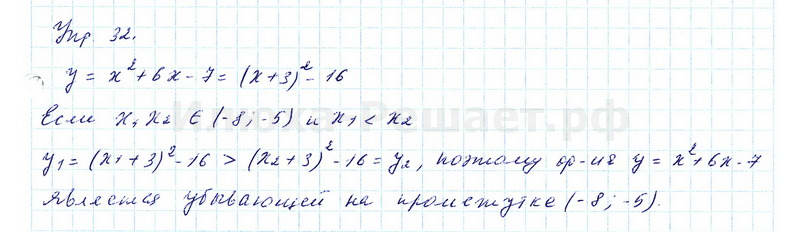 Упр. 32.
y = x² + 6x - 7 = (x+3)² - 16
Если x₁ x₂ ∈ (-8; -5) и x₁ < x₂
y₁ = (x₁ + 3)² - 16 > (x₂ + 3)² - 16 = y₂, поэтому ф-ия y = x² + 6x - 7
является убывающей на промежутке (-8; -5).
Илюха-Решает.рф